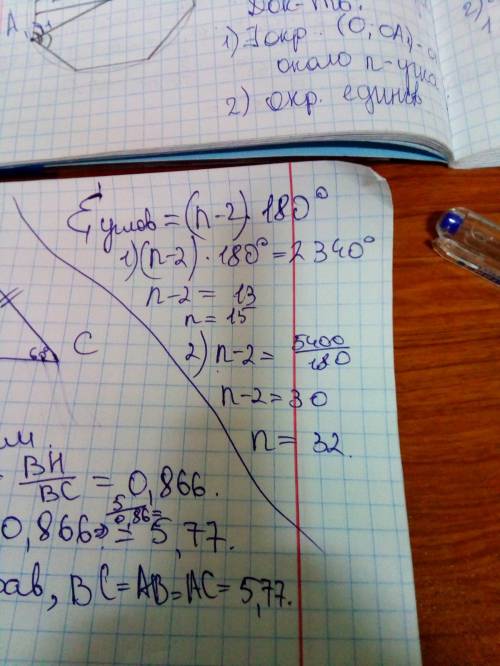 Док-тво:
A₁
1) ∃ окр. (O; OA₁) - о
около n-угка
2) окр. единев
2)
1
Σ углов = (n-2) · 180°
1) (n-2) · 180° = 2340°
n-2 = 13
n = 15
C
60°
2) n-2 = 5400/180
n-2 = 30
n = 32.
м.
BH/BC = 0,866.
0,866 => 5/0,86 = = 5,77.
рав, BC = AB = AC = 5,77.